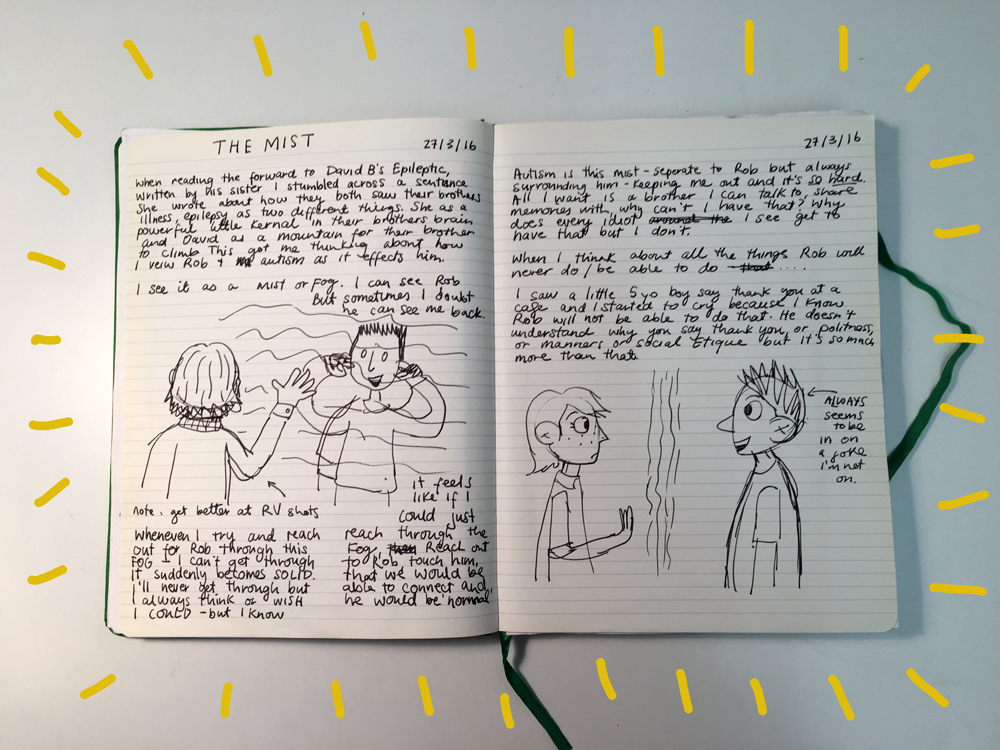 THE MIST
27/3/16
when reading the forward to David B's Epileptic,
written by his sister I stumbled across a sentance
She wrote about how they both saw their brothers
illness, epilepsy as two different things. She as a
powerful little kernal in their brothers brain
and David as a mountain for their brother
to climb This got me thinking about how
I veiw Rob & autism as it effects him.
I see it as a MIST or Fog. I can see Rob
But sometimes I doubt
he can see me back.
it feels
like if I
could just
note: get better at RV shots
Whenever I try and reach
out for Rob through this
FOG - I can't get through
it suddenly becomes SOLID.
I'll never get through but
I always think or WISH
I COULD - but I know
reach through the
Fog, then Reach out
to Rob, touch him,
that we would be
able to connect and
he would be 'normal'
27/3/16
Autism is this mist - seperate to Rob but always
surrounding him - keeping me out and it's so hard.
All I want is a brother I can talk to share
memories with why can't I have that? Why
does every idiot around the I see get to
have that but I don't.
When I think about all the things Rob will
never do / be able to do that ....
I saw a little 5 yo boy say thank you at a
cafe and I started to cry because I know
Rob will not be able to do that. He doesn't
understand why you say thank you, or politness,
or manners or social Etique but it's so much
more than that.
ALWAYS
seems
to be
in on
a joke
I'm not
on.